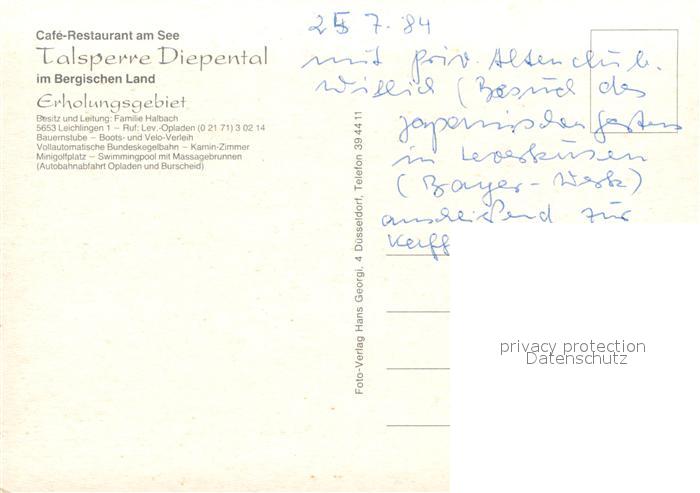 Café-Restaurant am See
Talsperre Diepental
im Bergischen Land
Erholungsgebiet
Besitz und Leitung: Familie Halbach
5653 Leichlingen 1 – Ruf: Lev.-Opladen (0 21 71) 3 02 14
Bauernstube – Boots- und Velo-Verleih
Vollautomatische Bundeskegelbahn – Kamin-Zimmer
Minigolfplatz – Swimmingpool mit Massagebrunnen
(Autobahnabfahrt Opladen und Burscheid)
Foto-Verlag Hans Georgi, 4 Düsseldorf, Telefon 39 44 11
25 7. 84
mit priv. Altenclub
Willich (Besuch des
japanischen Gartens
in Leverkusen
(Bayer-Werk)
anschließend zur
Kaff
privacy protection
Datenschutz